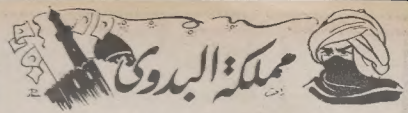 مملكة البدوى